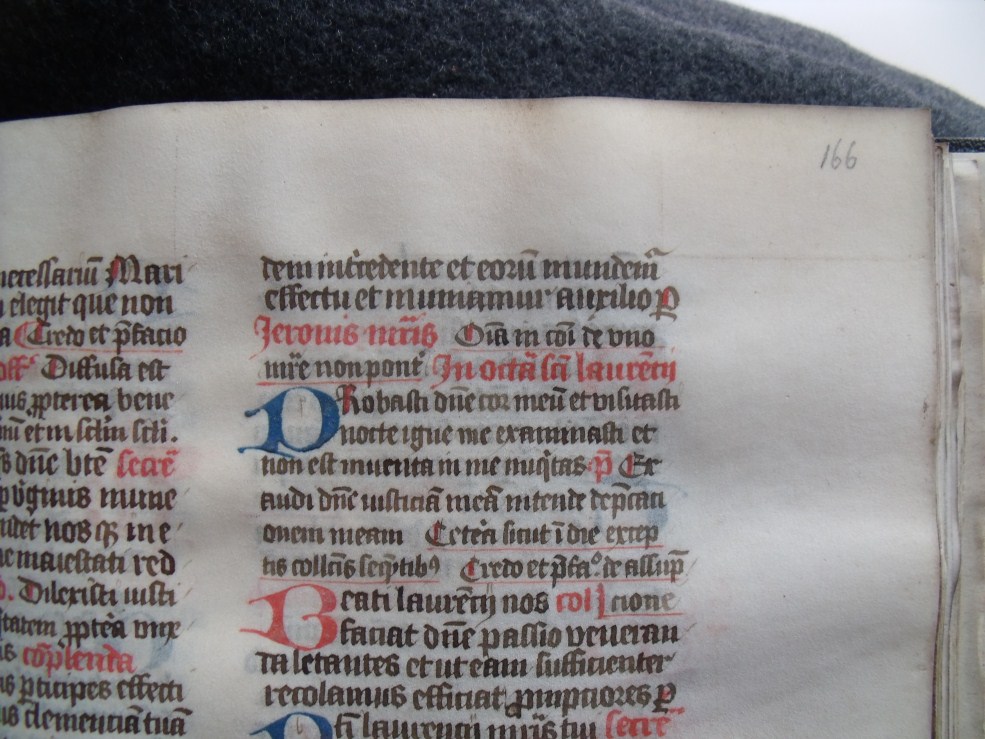 166
necessariū Mari
elegit que non
a Credo et p̄facio
off Diffusa est
ꝓpterea bene
nū et in sc̄lm sc̄li.
s dn̄e btē secre
nidet nos qs in e
maiestati red
Dilexisti iusti
tatem ꝓptea vnx
is cōplenda
ꝑticipes effecti
clemenciā tuā
dem int̄cedente et eorū mundem̄
effectu et muniamur auxilio ꝑ
Jeronis mr̄is Oīa in cōi de vno
mr̄e non pont Jn octā sc̄i laurēcij
PRobasti dn̄e cor meū et visitasti
nocte igne me examinasti et
non est inuenta in me iniq̇tas p̄ Ex
audi dn̄e iusticiā meā intende dep̄cati
onem meam Cetēa sicut ī die excep
tis collc̄is seq̄ntibꝰ Credo et p̄fa.º de assup̄
Beati laurēcij nos col lcione
faciat dn̄e passio veneran
da letantes et ut eam sufficienter
recolamus efficiat ꝓmpciores ꝑ
laurencij mr̄is tui secre